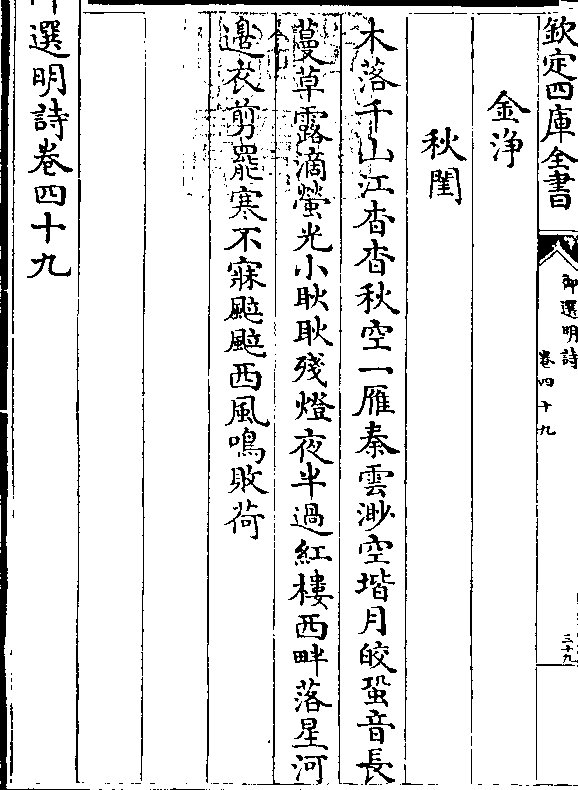 欽定四庫全書
御選明詩
卷四十九
三十九
金浄
秋閨
木落千山江杳杳秋空一雁秦雲渺空堦月皎蛩音長
蔓草露滴螢光小耿耿殘燈夜半過紅樓西畔落星河
邊衣剪罷寒不寐颭颭西風鳴敗荷
選明詩卷四十九